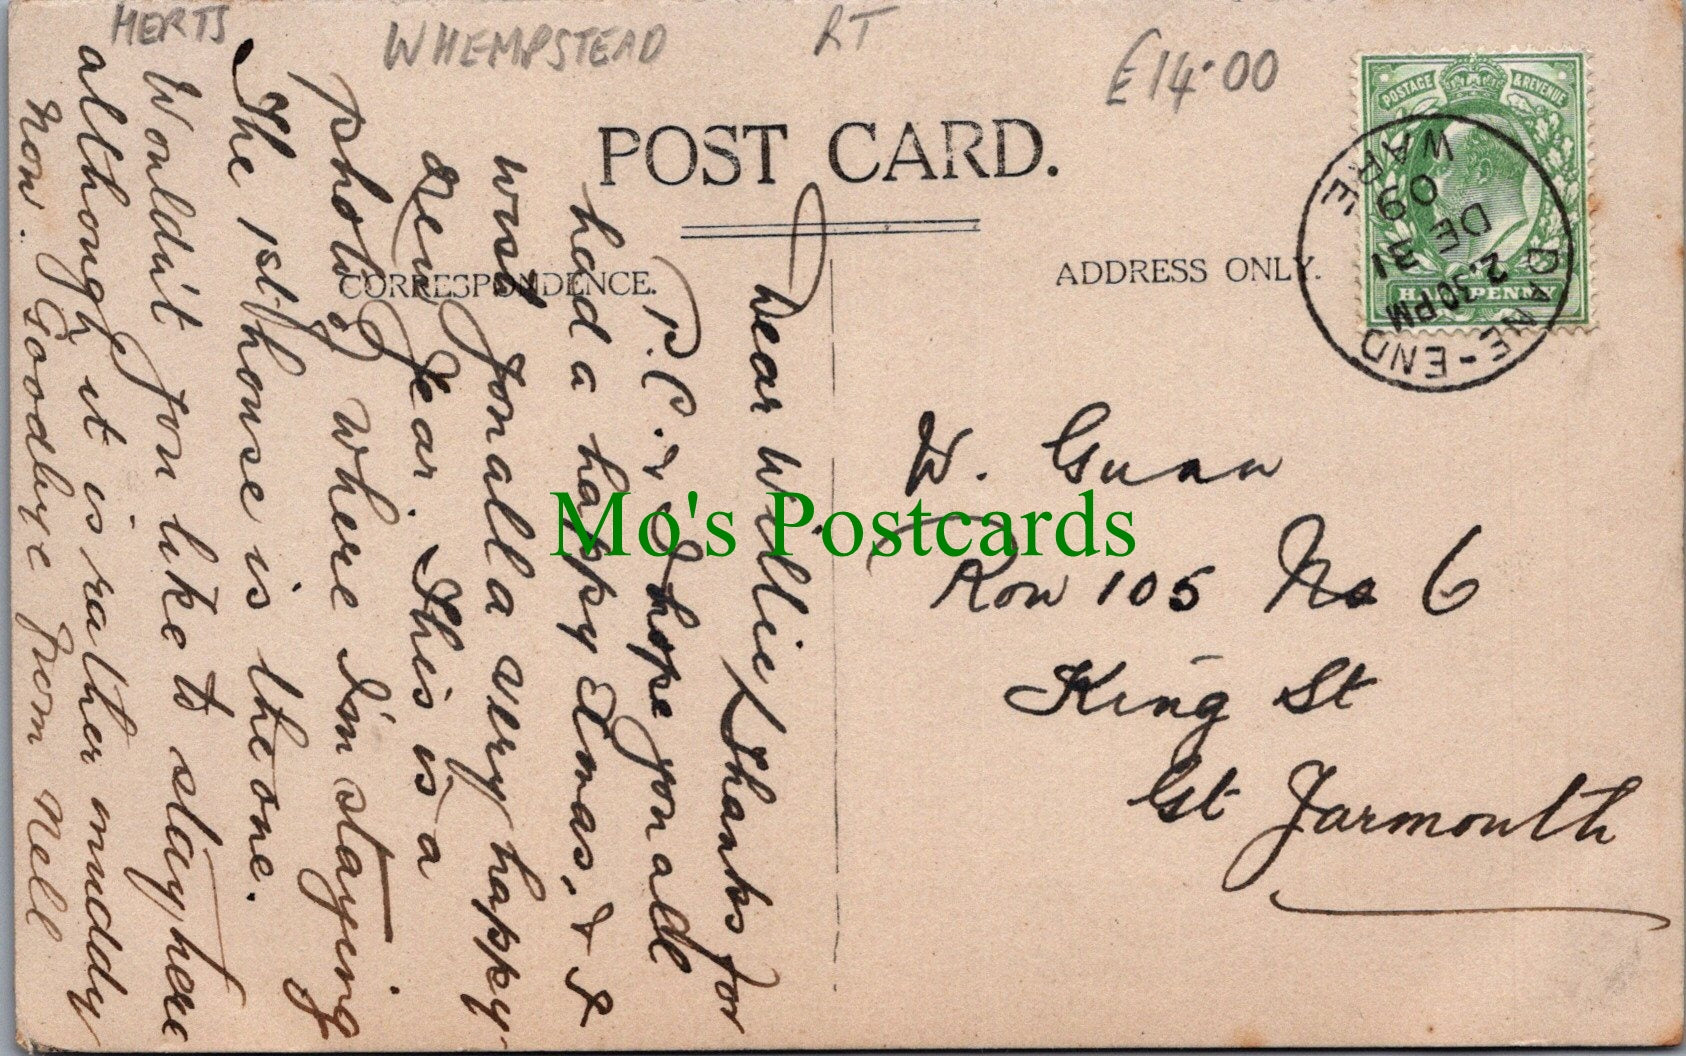 HERTS
WHEMPSTEAD
RT
£14.00
POST CARD.
CORRESPONDENCE.
ADDRESS ONLY.
POSTAGE & REVENUE
HALFPENNY
DANE-END
WARE
2.30PM
31
DE
09
Dear Willie Thanks for
P.C. & I hope you all
had a happy Xmas, & I
wish you all a very happy
New Year. This is a
photog where I'm staying
The 1st house is the one.
Wouldn't you like to stay here
although it is rather muddy
now. Goodbye from Nell
W. Gunn
Row 105 No 6
King St
Gt Yarmouth
Mo's Postcards